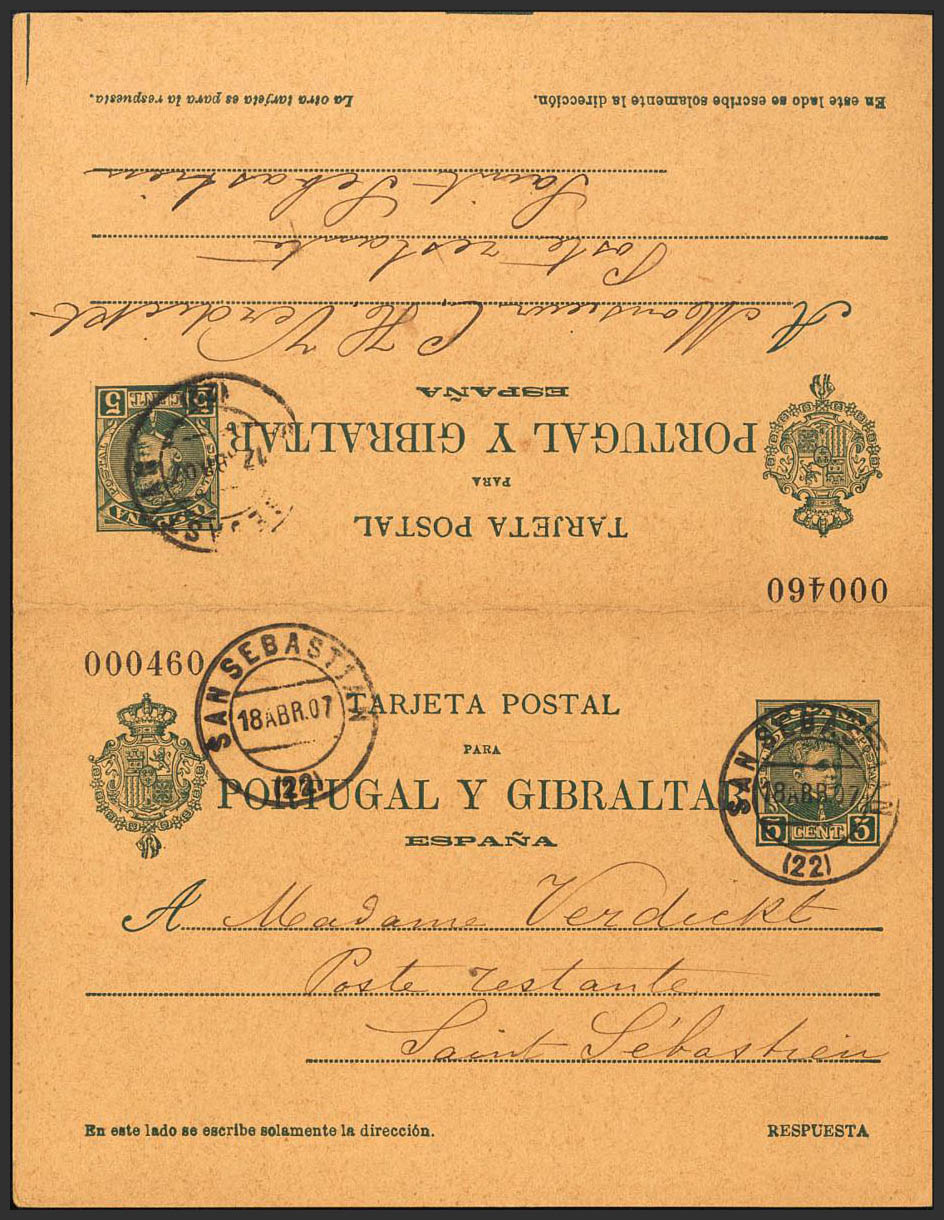 La otra tarjeta es para la respuesta.
En este lado se escribe solamente la dirección.
Saint-Sébastien
Poste restante
A Monsieur C. H. Verdickt
5 CENT. 5
ESPAÑA
PORTUGAL Y GIBRALTAR
PARA
TARJETA POSTAL
000460
000460
SAN SEBASTIAN
18 ABR. 07
(22)
TARJETA POSTAL
PARA
PORTUGAL Y GIBRALTAR
ESPAÑA
SAN SEBASTIAN
18 ABR. 07
(22)
5 CENT 5
A Madame Verdickt
Poste restante
Saint Sébastien
En este lado se escribe solamente la dirección.
RESPUESTA